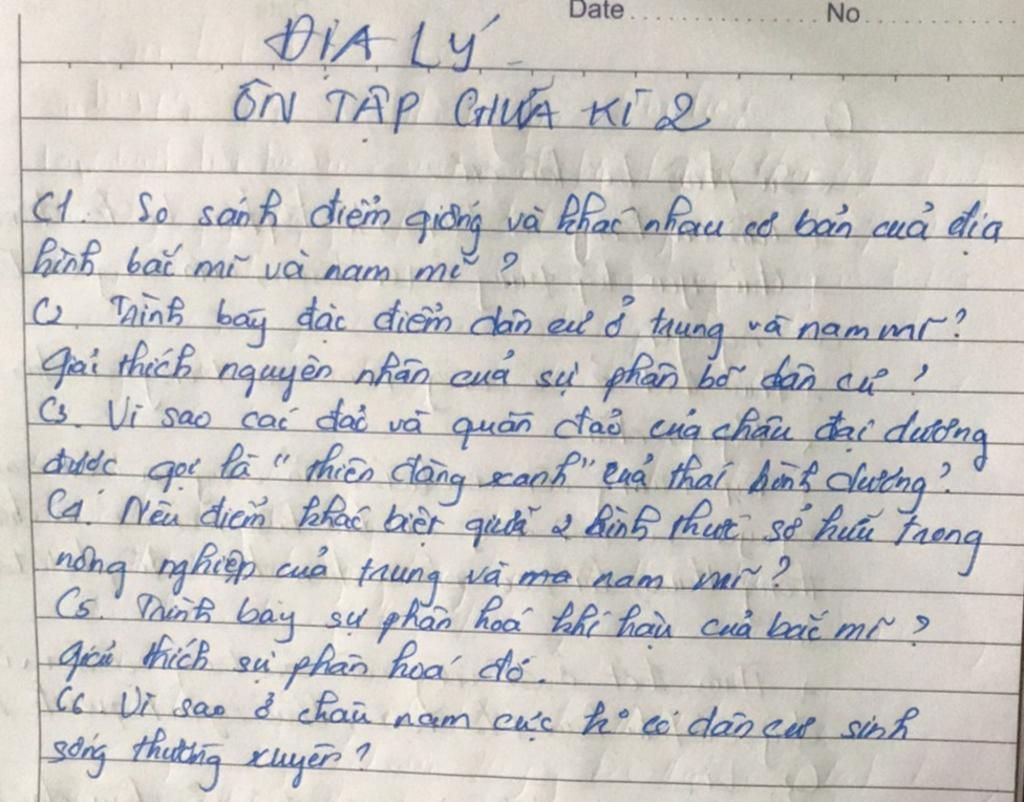 Date ............... No ...............
ĐỊA LÝ
ÔN TẬP GIỮA KÌ 2
C1. So sánh điểm giống và khác nhau cơ bản của địa
hình bắc mĩ và nam mĩ ?
C2. Trình bày đặc điểm dân cư ở trung và nam mĩ ?
giải thích nguyên nhân của sự phân bố dân cư ?
C3. Vì sao các đảo và quần đảo của châu đại dương
được gọi là "thiên đàng xanh" của thái bình dương?
C4. Nêu điểm khác biệt giữa 2 hình thức sở hữu trong
nông nghiệp của trung và ma nam mĩ ?
C5. Trình bày sự phân hoá khí hậu của bắc mĩ ?
giải thích sự phân hoá đó.
C6. Vì sao ở châu nam cực ko có dân cư sinh
sống thường xuyên ?